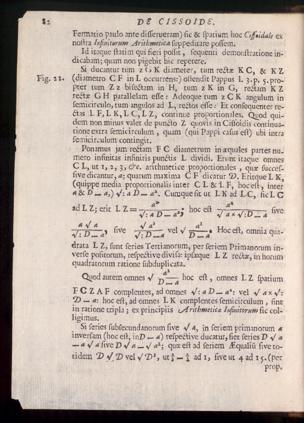 82 DE CISSOIDE.
Fermatio paulo ante disserueram) sic & spatium hoc Cissoidale ex
nostra Infinitorum Arithmetica suppeditare possem.
Id itaque statim qui fieri possit, sequenti demonstratione in-
dicabam; quam non pigebit hic repetere.
Si ducantur tum 2 G K diameter, tum rectæ K C, & K Z
Fig. 22. (diametro C F in L occurrens)
pter tum Z z bisectam in H, tum z K in G, rectam K Z
rectæ G H parallelam esse: Adeoque tum z C K angulum in
semicirculo, tum angulos ad L, rectos esse: Et consequenter re-
ctas L F, L K, L C, L Z, continue proportionales. Quod qui-
dem non minus valet de puncto Z quovis in Cissoidis continua-
tione extra semicirculum, quam (qui Pappi casus est) ubi intra
semicirculum contingit.
Ponamus jam rectam F C diametrum in æquales partes nu-
mero infinitas infinitis punctis L dividi. Erunt itaque omnes
C L, ut 1, 2, 3, &c. arithmetice proportionales, quæ succes-
sive dicantur, a; quarum maxima C F dicatur D. Eritque L K,
(quippe media proportionalis inter C L & L F, hoc est, inter
a & D — a,) √: a D — a². Cumque sit ut L K ad L C, sic L C
ad L Z; erit L Z = a² / √: a D — a², hoc est √ a⁴ / √ a × √: D — a sive
a √ a / √: D — a, sive √ a³ / √: D — a vel √ a³ / D — a. Hoc est, omnia qua-
drata L Z, sunt series Tertianorum, per seriem Primanorum in-
verse positorum, respective divisa: ipsæque L Z rectæ, in horum
quadratorum ratione subduplicata.
Quod autem omnes √ a³ / D — a, hoc est, omnes L Z spatium
F C Z A F complentes, ad omnes √: a D — a²: vel √ a × √:
D — a: hoc est, ad omnes L K complentes semicirculum, sint
in ratione tripla; ex principiis Arithmeticæ Infinitorum sic col-
ligimus.
Si series subsecundanorum sive √ a, in seriem primanorum
inversam (hoc est, in D — a) respective ducatur, fiet series D √ a
— a √ a sive D √ a — √ a³; quæ est ad seriem Æqualium sive to-
tidem D √ D vel √ D³, ut ⅔ — ⅖ ad 1, sive ut 4 ad 15. (per
prop.